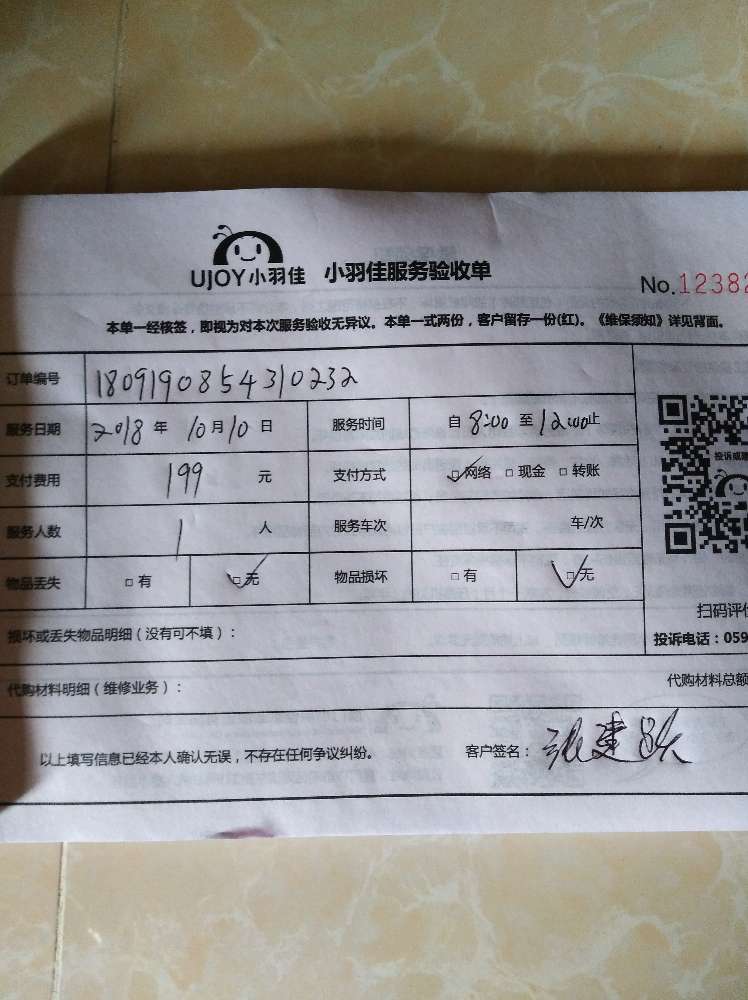 UJOY小羽佳 小羽佳服务验收单
No.12382
本单一经核签，即视为对本次服务验收无异议。本单一式两份，客户留存一份(红)。《维保须知》详见背面。
订单编号 1809190854310232
服务日期 2018 年 10 月 10 日 服务时间 自 8:00 至 12:00 止
支付费用 199 元 支付方式 □网络 □现金 □转账
投诉或
服务人数 1 人 服务车次 车/次
物品丢失 □有 □无 物品损坏 □有 □无
扫码评
损坏或丢失物品明细（没有可不填）：
投诉电话：059
代购材料明细（维修业务）： 代购材料总额
以上填写信息已经本人确认无误，不存在任何争议纠纷。 客户签名： 张建跃